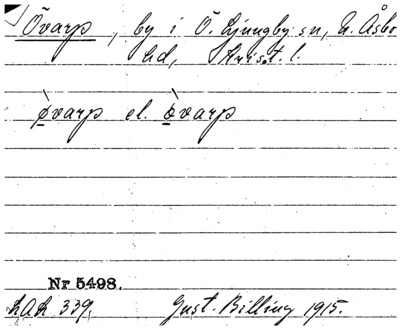 Övarp, by i Ö. Ljungby sn, N. Åsbo
hd, Krist. l.
ø̀varp el. ò̤varp
Nr 5498.
LAL 339. Gust. Billing 1915.